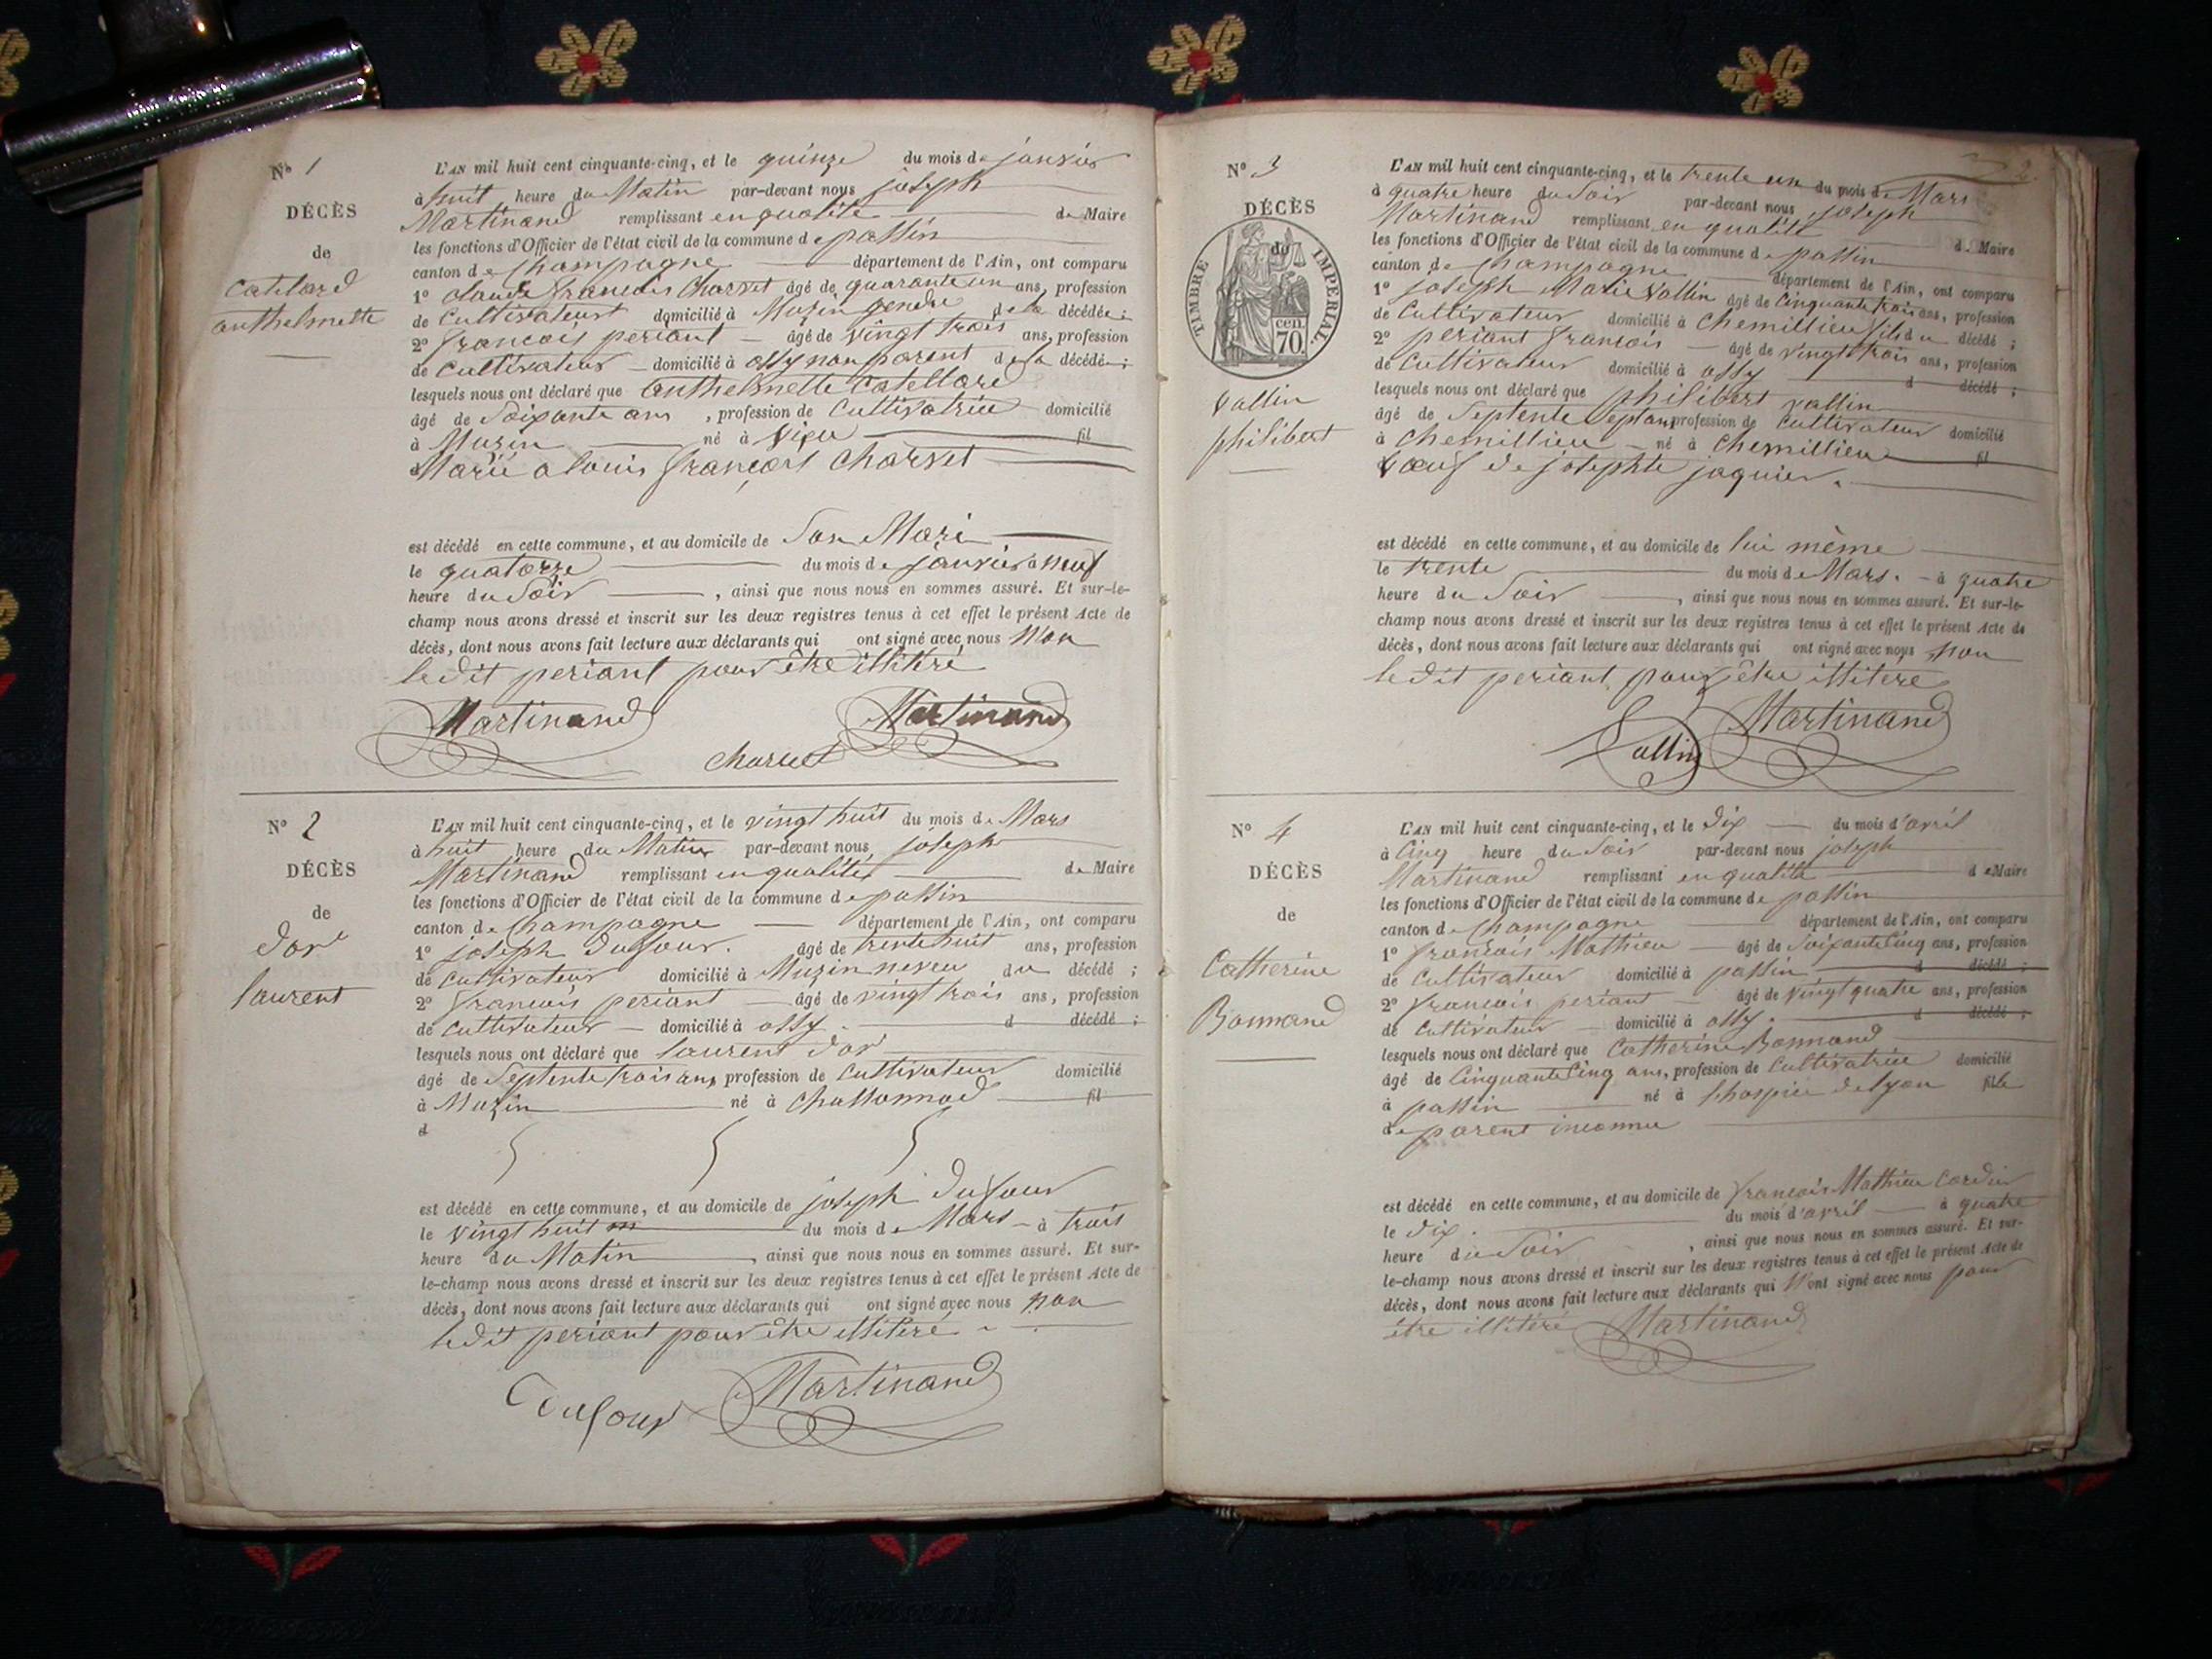 N° 1
DÉCÈS
de
Catelard
anthelmette
L'AN mil huit cent cinquante-cinq, et le quinze du mois de janvier
à huit heure du Matin par-devant nous joseph
Martinand remplissant en qualité de Maire
les fonctions d'Officier de l'état civil de la commune de passin
canton de Champagne département de l'Ain, ont comparu
1° Claude francois Charvet âgé de quarante un ans, profession
de Cultivateur domicilié à Muzin gendre de la décédée ;
2° francois periant âgé de vingt trois ans, profession
de Cultivateur domicilié à ossy non parent de la décédé ;
lesquels nous ont déclaré que anthelmette Catellard
âgé de Soixante ans, profession de Cultivatrice domicilié
à Muzin né à Vieu fil
Marié a louis françois Charvet
est décédé en cette commune, et au domicile de Son Mari
le quatorze du mois de janvier à neuf
heure du Soir, ainsi que nous nous en sommes assuré. Et sur-le-
champ nous avons dressé et inscrit sur les deux registres tenus à cet effet le présent Acte de
décès, dont nous avons fait lecture aux déclarants qui ont signé avec nous Non
ledit periant pour être illitéré
Martinand Martinand
Charvet
N° 2
DÉCÈS
de
dor
laurent
L'AN mil huit cent cinquante-cinq, et le vingt huit du mois de Mars
à huit heure du Matin par-devant nous joseph
Martinand remplissant en qualité de Maire
les fonctions d'Officier de l'état civil de la commune de passin
canton de Champagne département de l'Ain, ont comparu
1° joseph dufour. âgé de trente huit ans, profession
de cultivateur domicilié à Muzin neveu du décédé ;
2° francois periant âgé de vingt trois ans, profession
de cultivateur domicilié à ossy. d décédé ;
lesquels nous ont déclaré que laurent dor
âgé de Septente trois ans, profession de Cultivateur domicilié
à Muzin né à Chattonnod fil
d
est décédé en cette commune, et au domicile de joseph dufour
le vingt huit du mois de Mars à trois
heure du Matin, ainsi que nous nous en sommes assuré. Et sur-
le-champ nous avons dressé et inscrit sur les deux registres tenus à cet effet le présent Acte de
décès, dont nous avons fait lecture aux déclarants qui ont signé avec nous non
ledit periant pour être illitéré
Dufour Martinand
2.
N° 3
DÉCÈS
de
TIMBRE IMPERIAL.
cen. 70
Vallin
philibert
L'AN mil huit cent cinquante-cinq, et le trente un du mois de Mars
à quatre heure du Soir par-devant nous joseph
Martinand remplissant en qualité de Maire
les fonctions d'Officier de l'état civil de la commune de passin
canton de Champagne département de l'Ain, ont comparu
1° joseph Marie Vallin âgé de Cinquante trois ans, profession
de Cultivateur domicilié à Chemillieu fils du décédé ;
2° periant francois âgé de vingt trois ans, profession
de Cultivateur domicilié à ossy d décédé ;
lesquels nous ont déclaré que philibert vallin
âgé de Septente Sept ans profession de Cultivateur domicilié
à Chemillieu né à Chemillieu fil
Vœuf de josephte jaquier.
est décédé en cette commune, et au domicile de lui même
le trente du mois de Mars. à quatre
heure du Soir, ainsi que nous nous en sommes assuré. Et sur-le-
champ nous avons dressé et inscrit sur les deux registres tenus à cet effet le présent Acte de
décès, dont nous avons fait lecture aux déclarants qui ont signé avec nous non
ledit periant pour être illitere
Vallin Martinand
N° 4
DÉCÈS
de
Catherine
Bonnand
L'AN mil huit cent cinquante-cinq, et le dix du mois d'avril
à Cinq heure du Soir par-devant nous joseph
Martinand remplissant en qualité de Maire
les fonctions d'Officier de l'état civil de la commune de passin
canton de Champagne département de l'Ain, ont comparu
1° francois Mathieu âgé de Soixante Cinq ans, profession
de Cultivateur domicilié à passin d décédé ;
2° francois periant âgé de vingt quatre ans, profession
de Cultivateur domicilié à ossy. d décédé ;
lesquels nous ont déclaré que Catherine Bonnand
âgé de Cinquante Cinq ans, profession de Cultivatrice domicilié
à passin né à l'hospice de lyon fille
de parent inconnu
est décédé en cette commune, et au domicile de francois Mathieu Cordier
le dix. du mois d'avril à quatre
heure du Soir, ainsi que nous nous en sommes assuré. Et sur-
le-champ nous avons dressé et inscrit sur les deux registres tenus à cet effet le présent Acte de
décès, dont nous avons fait lecture aux déclarants qui N'ont signé avec nous pour
être illitéré Martinand